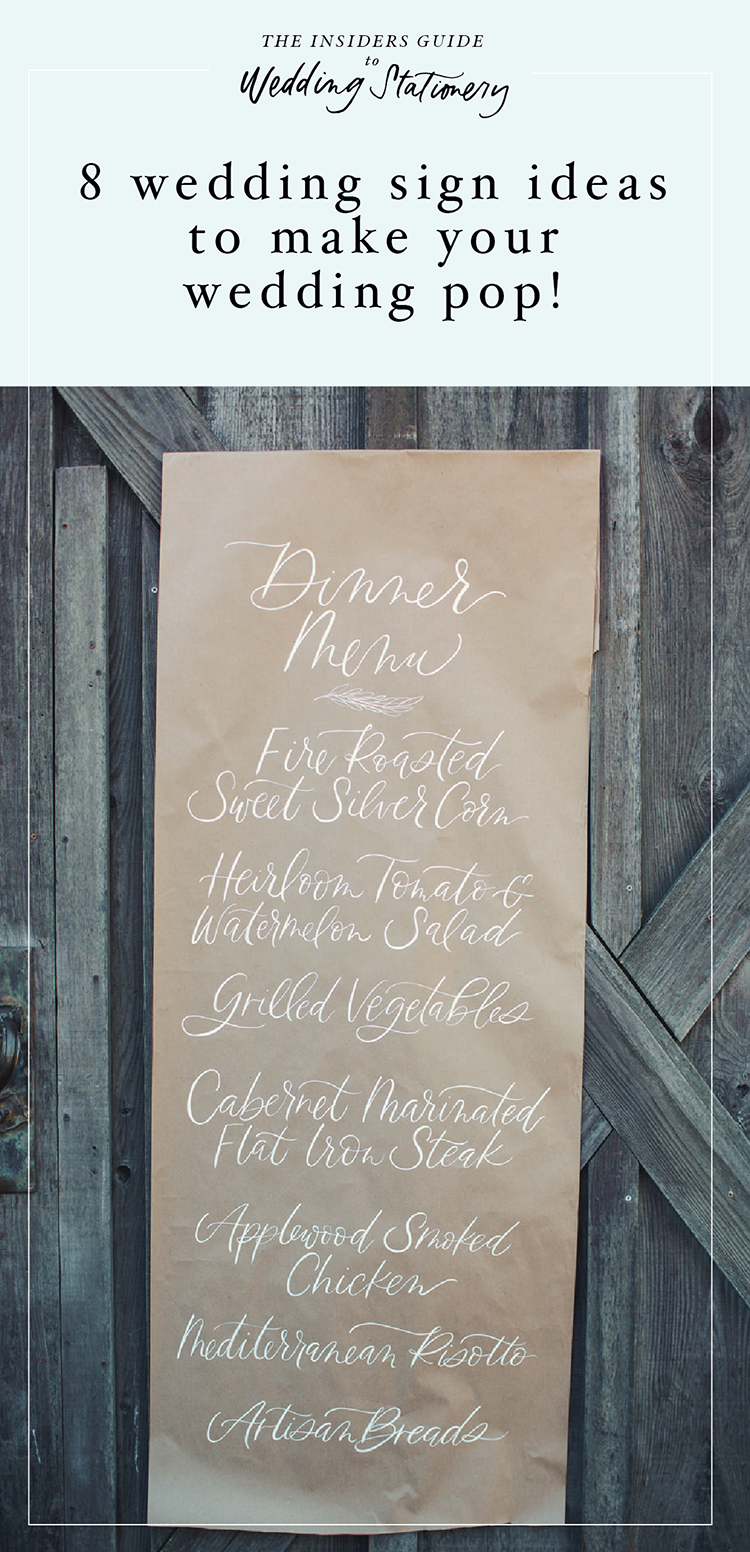 THE INSIDERS GUIDE
to
Wedding Stationery
8 wedding sign ideas
to make your
wedding pop!
Dinner
Menu
Fire Roasted
Sweet Silver Corn
Heirloom Tomato &
Watermelon Salad
Grilled Vegetables
Cabernet Marinated
Flat Iron Steak
Applewood Smoked
Chicken
Mediterranean Risotto
Artisan Breads